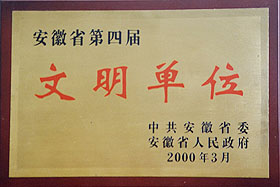 安徽省第四届
文明单位
中共安徽省委
安徽省人民政府
2000年3月